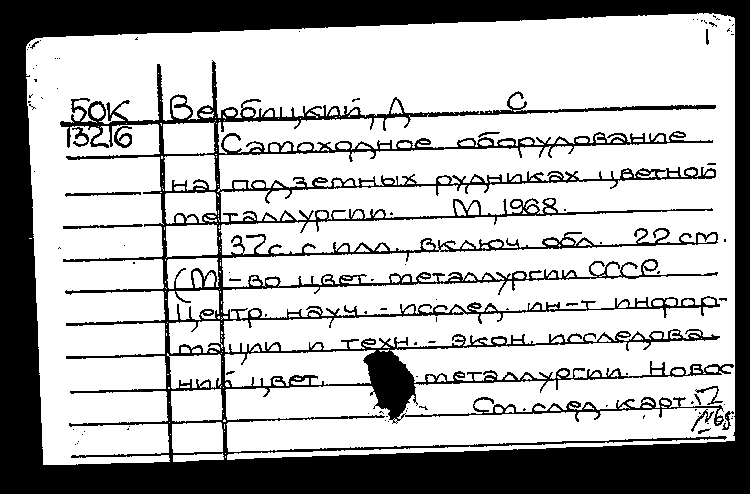 1
50К Вербицкий, Д С
13216 Самоходное оборудование
на подземных рудниках цветной
металлургии. М., 1968.
37с. с илл., включ. обл. 22 см.
(М-во цвет. металлургии СССР.
Центр. науч.-исслед. ин-т инфор-
мации и техн.-экон. исследова-
ний цвет. металлургии. Новос
См. след. карт.